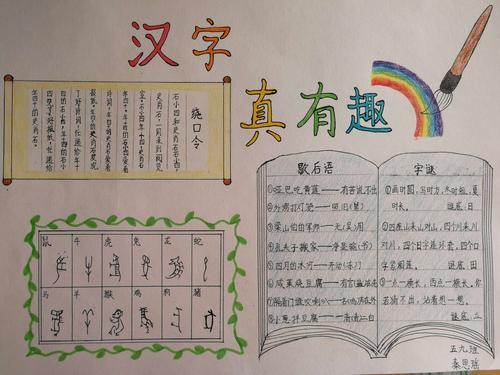 汉字
真有趣
绕口令
石小四和
史肖石,一同来到阅览
室。石小四年十四,史肖石
年四十。年十四的石小四爱看
诗词,年四十的史肖石爱看
报纸。年四十的史肖石发现
了好诗词,忙递给年十
四的石小四,年十四的石小
四见了好报纸,忙递给
年四十的史肖石。
鼠 牛 虎 兔 龙 蛇
马 羊 猴 鸡 狗 猪
歇后语
①哑巴吃黄莲——有苦说不出
②外甥打灯笼——照旧(舅)
③梁山伯的军师——无(吴)用
④孔夫子搬家——净是输(书)
⑤四月的冰河——开动(冻)了
⑥咸菜烧豆腐——有言(盐)在先
⑦隔着门缝吹喇叭——名(鸣)声在外
⑧小葱拌豆腐——一清二白
字谜
①画时圆,写时方,冬时短,夏
时长。 谜底:日
②四座山来山对山,四个川来川
对川,四个口字连环套,四个口
字紧相连。 谜底:田
③一点一横长,两点一横长,你
若猜不出,站着想一想。
谜底:立
五九班
秦思瑶